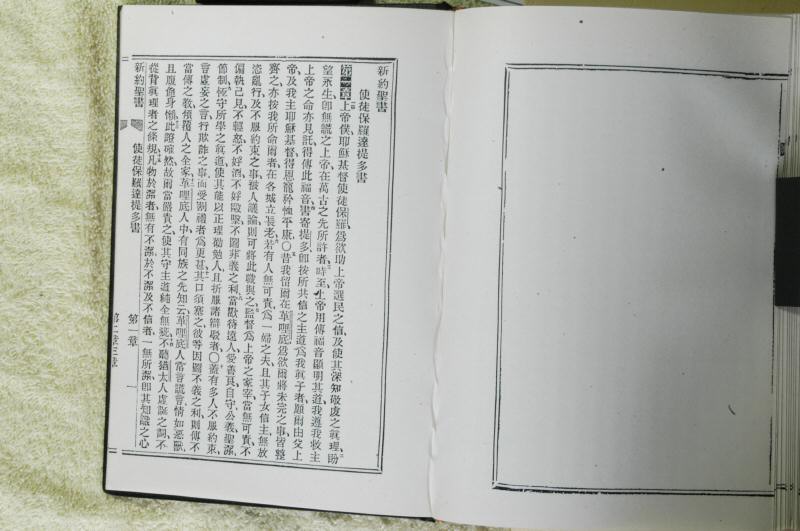 新約聖書
使徒保羅達提多書
第一章上帝僕耶穌基督使徒保羅、爲欲助上帝選民之信及使其深知敬虔之眞理、盼
望永生、卽無謊之上帝、在萬古之先所許者、時至、上帝用傳福音顯明其道、我遵我救主
上帝之命、亦見託得傳此福音、書寄提多、卽按所共信之主道、爲我眞子者、願爾由父上
帝、及我主耶穌基督、得恩寵矜恤平康、〇昔我留爾在革哩底、爲欲爾將未完之事、皆整
齊之、亦按我所命爾者、在各城立長老、若有人無可責、爲一婦之夫、且其子女信主、無放
恣亂行、及不服約束之事、被人議論、則可將此職與之、監督爲上帝之家宰、當無可責、不
偏執己見、不輕怒、不好酒、不好毆擊、不圖非義之利、當款待遠人、愛善良、自守、公義、聖潔、
節制、恆守所學之眞道、使其能以正理勸勉人、且折服諸辯駁者、〇蓋有多人不服約束、
言虛妄之言、行欺詐之事、而受割禮者爲更甚、其口須塞之、彼等因圖不義之利、則傳不
當傳之教、傾覆人之全家、革哩底人中、有同族之先知云、革哩底人常言謊言、情如惡獸、
且腹飽身懶、此證確然、故爾當嚴責之、使其守主道純全無疵、不聽猶太人虛誕之詞、不
從背眞理者之條規、凡物於潔者、無有不潔、於不潔及不信者、一無所潔、卽其知識之心
新約聖書
使徒保羅達提多書
第一章
一
第二章三章